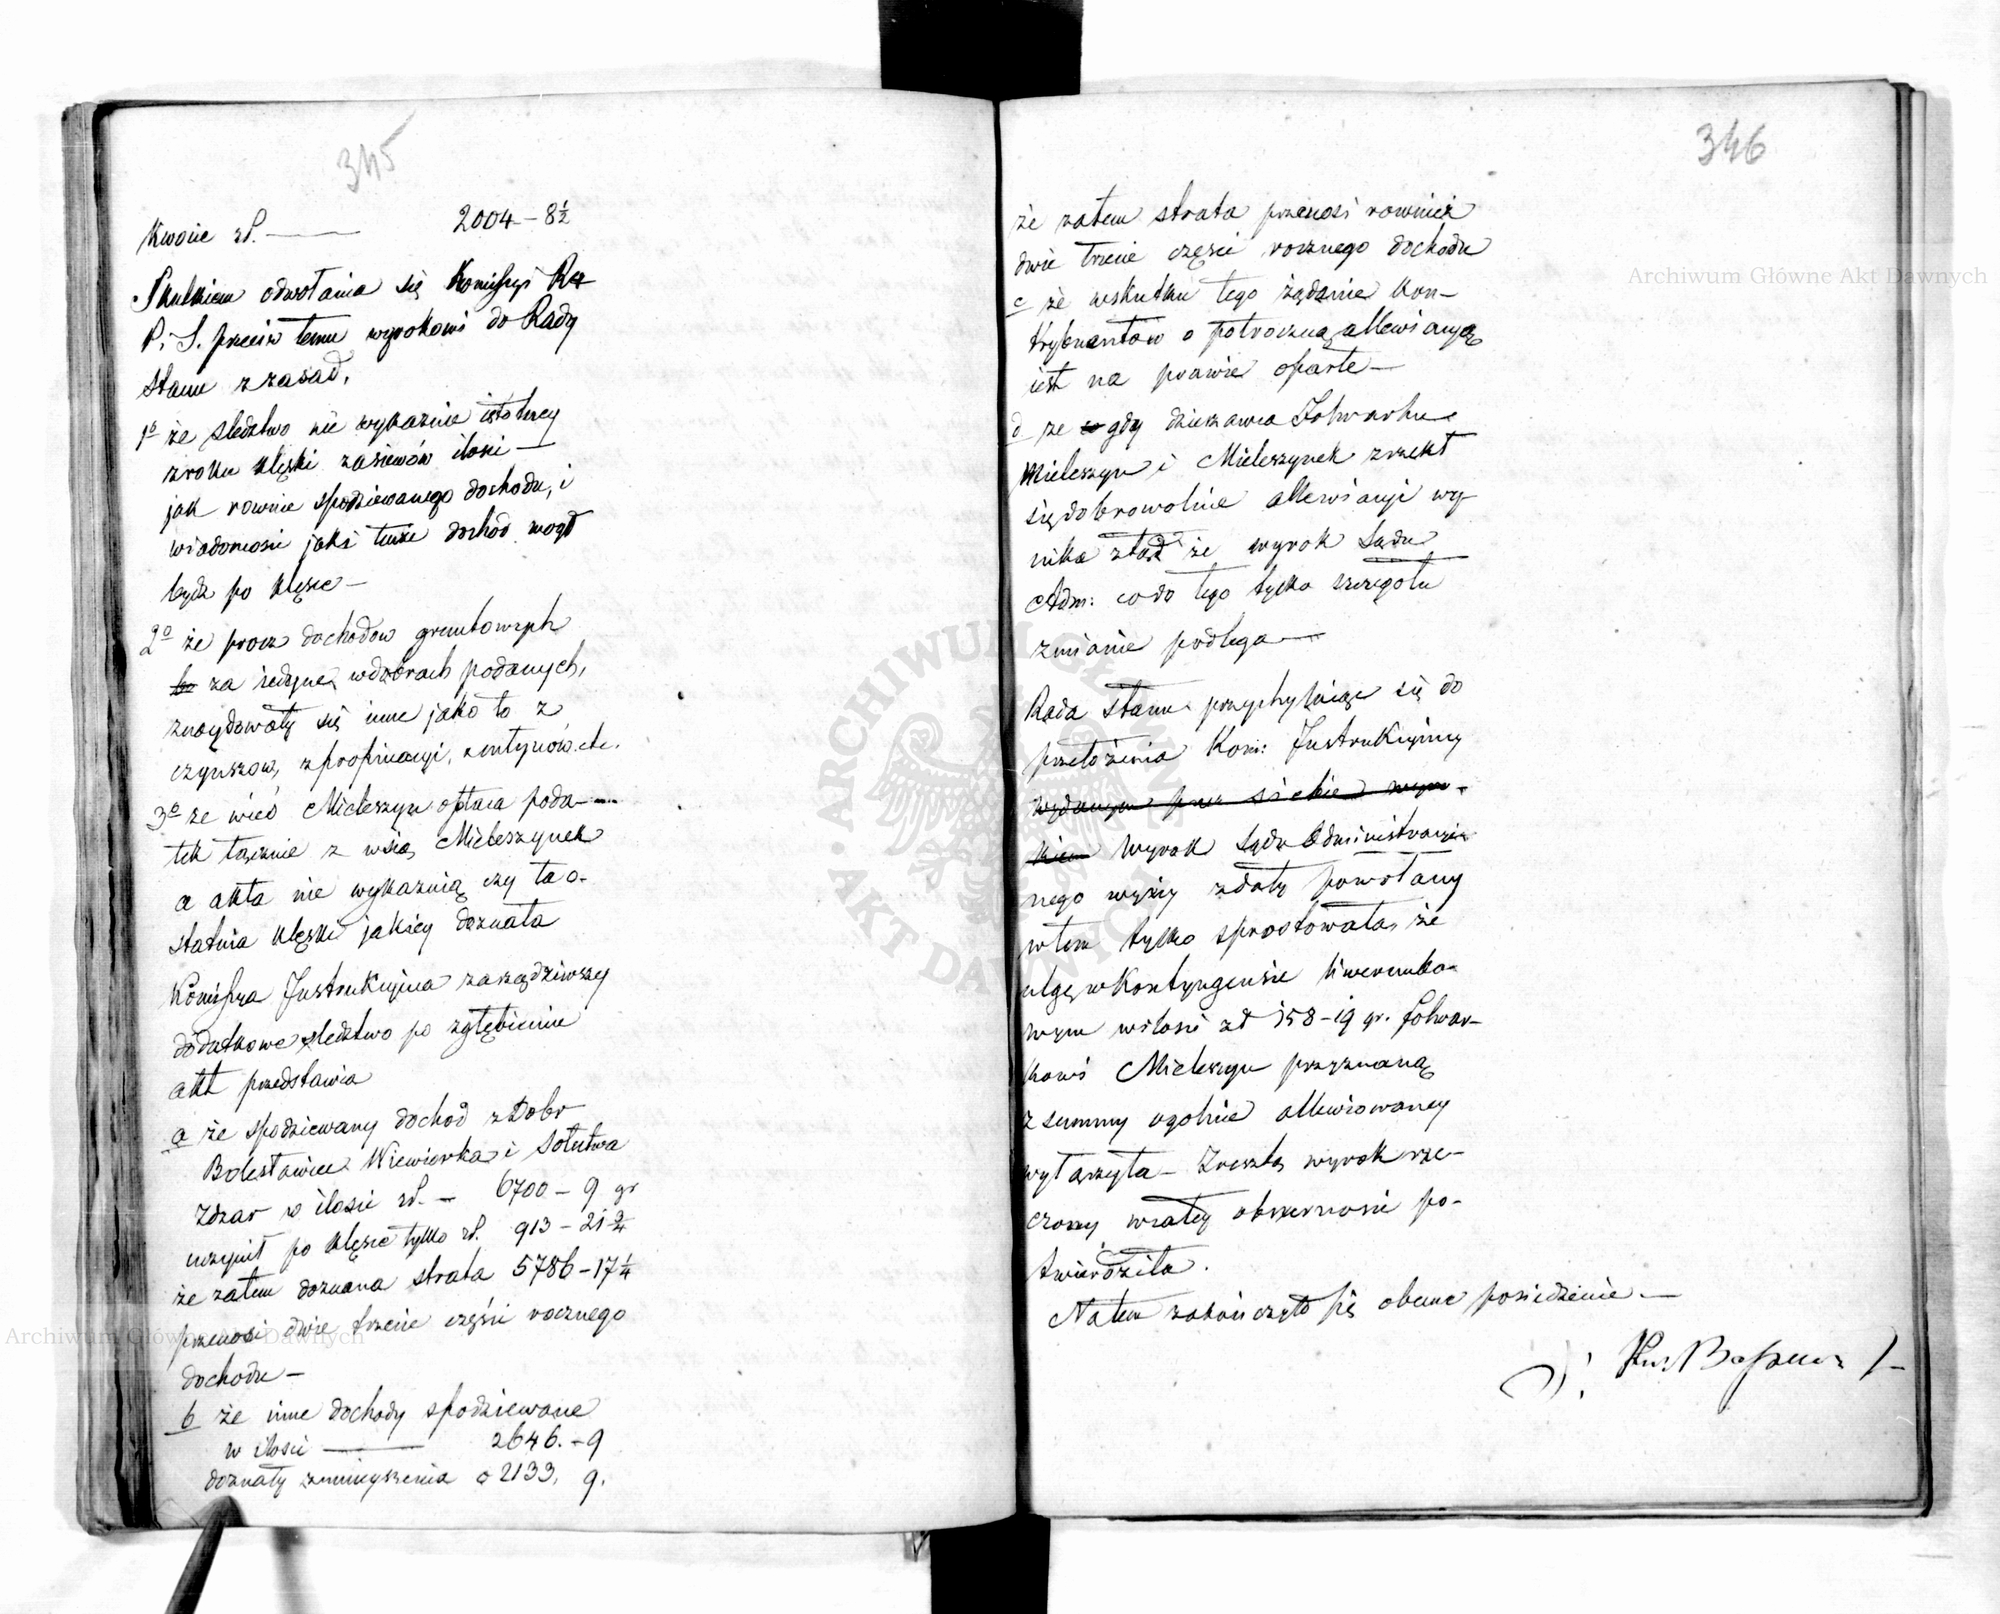 345
Kwocie zł. — 2004 – 8½
Skutkiem odwołania się Kommissyi R
P. i S. przeciw temu wyrokowi do Rady
Stanu z zasad,
1º że śledztwo nie wykazuie istotney
zroku klęski zasiewów ilości —
jak rownie spodziewanego dochodu, i
wiadomości jaki tenże dochód mogł
bydź po klęsce —
2º że procz dochodow gruntowych
za iedyne w dobrach podanych,
znaydowały się inne jako to z
czynszow, z propinacyi, z młynów etc.
3º że wieś Mieleszyn opłaca poda-
tek łącznie z wsią Mieleszynek
a akta nie wykazuią czy ta o-
statnia klęski jakiey doznała
Kommissya Instrukcyina zarządziwszy
dodatkowe śledztwo po zgłębieniu
akt przedstawia
a że spodziewany dochod z Dobr
Bolesławiec Wiewiorka i Sołectwa
Zdzar w ilości zł. – 6700 – 9 gr
uczynił po klęsce tylko zł. 913 – 21¾
że zatem doznana strata 5786 – 17¼
przenosi dwie trzecie części rocznego
dochodu —
b że inne dochody spodziewane
w ilości — 2646. – 9
doznały zmnieyszenia o 2133, 9.
346
że zatem strata przenosi rownież
dwie trzecie części rocznego dochodu
c że wskutku tego żądanie kon-
trybuentów o połroczną allewiacyą
iest na prawie oparte —
d że gdy dzierzawca Folwarku
Mieleszyn i Mieleszynek zrzekł
się dobrowolnie allewiacyi wy-
nika ztąd że wyrok Sądu
Adm: co do tego tylko szczegołu
zmianie podlega —
Rada Stanu przychylaiąc się do
przełożenia Kom: Instrukcyiney
wydanym przez siebie wyro-
kiem Wyrok Sądu Administracyi-
nego wyżey z daty powołany
w tem tylko sprostowała, że
ulgę w kontyngensie liwerunko-
wym w ilości zł 158 – 19 gr. folwar-
kowi Mieleszyn przyznaną
z summy ogolnie allewiowaney
wytrąciła – Zresztą wyrok rze-
czony w całey obszerności po-
twierdziła.
Na tem zakończyło się obecne posiedzenie —